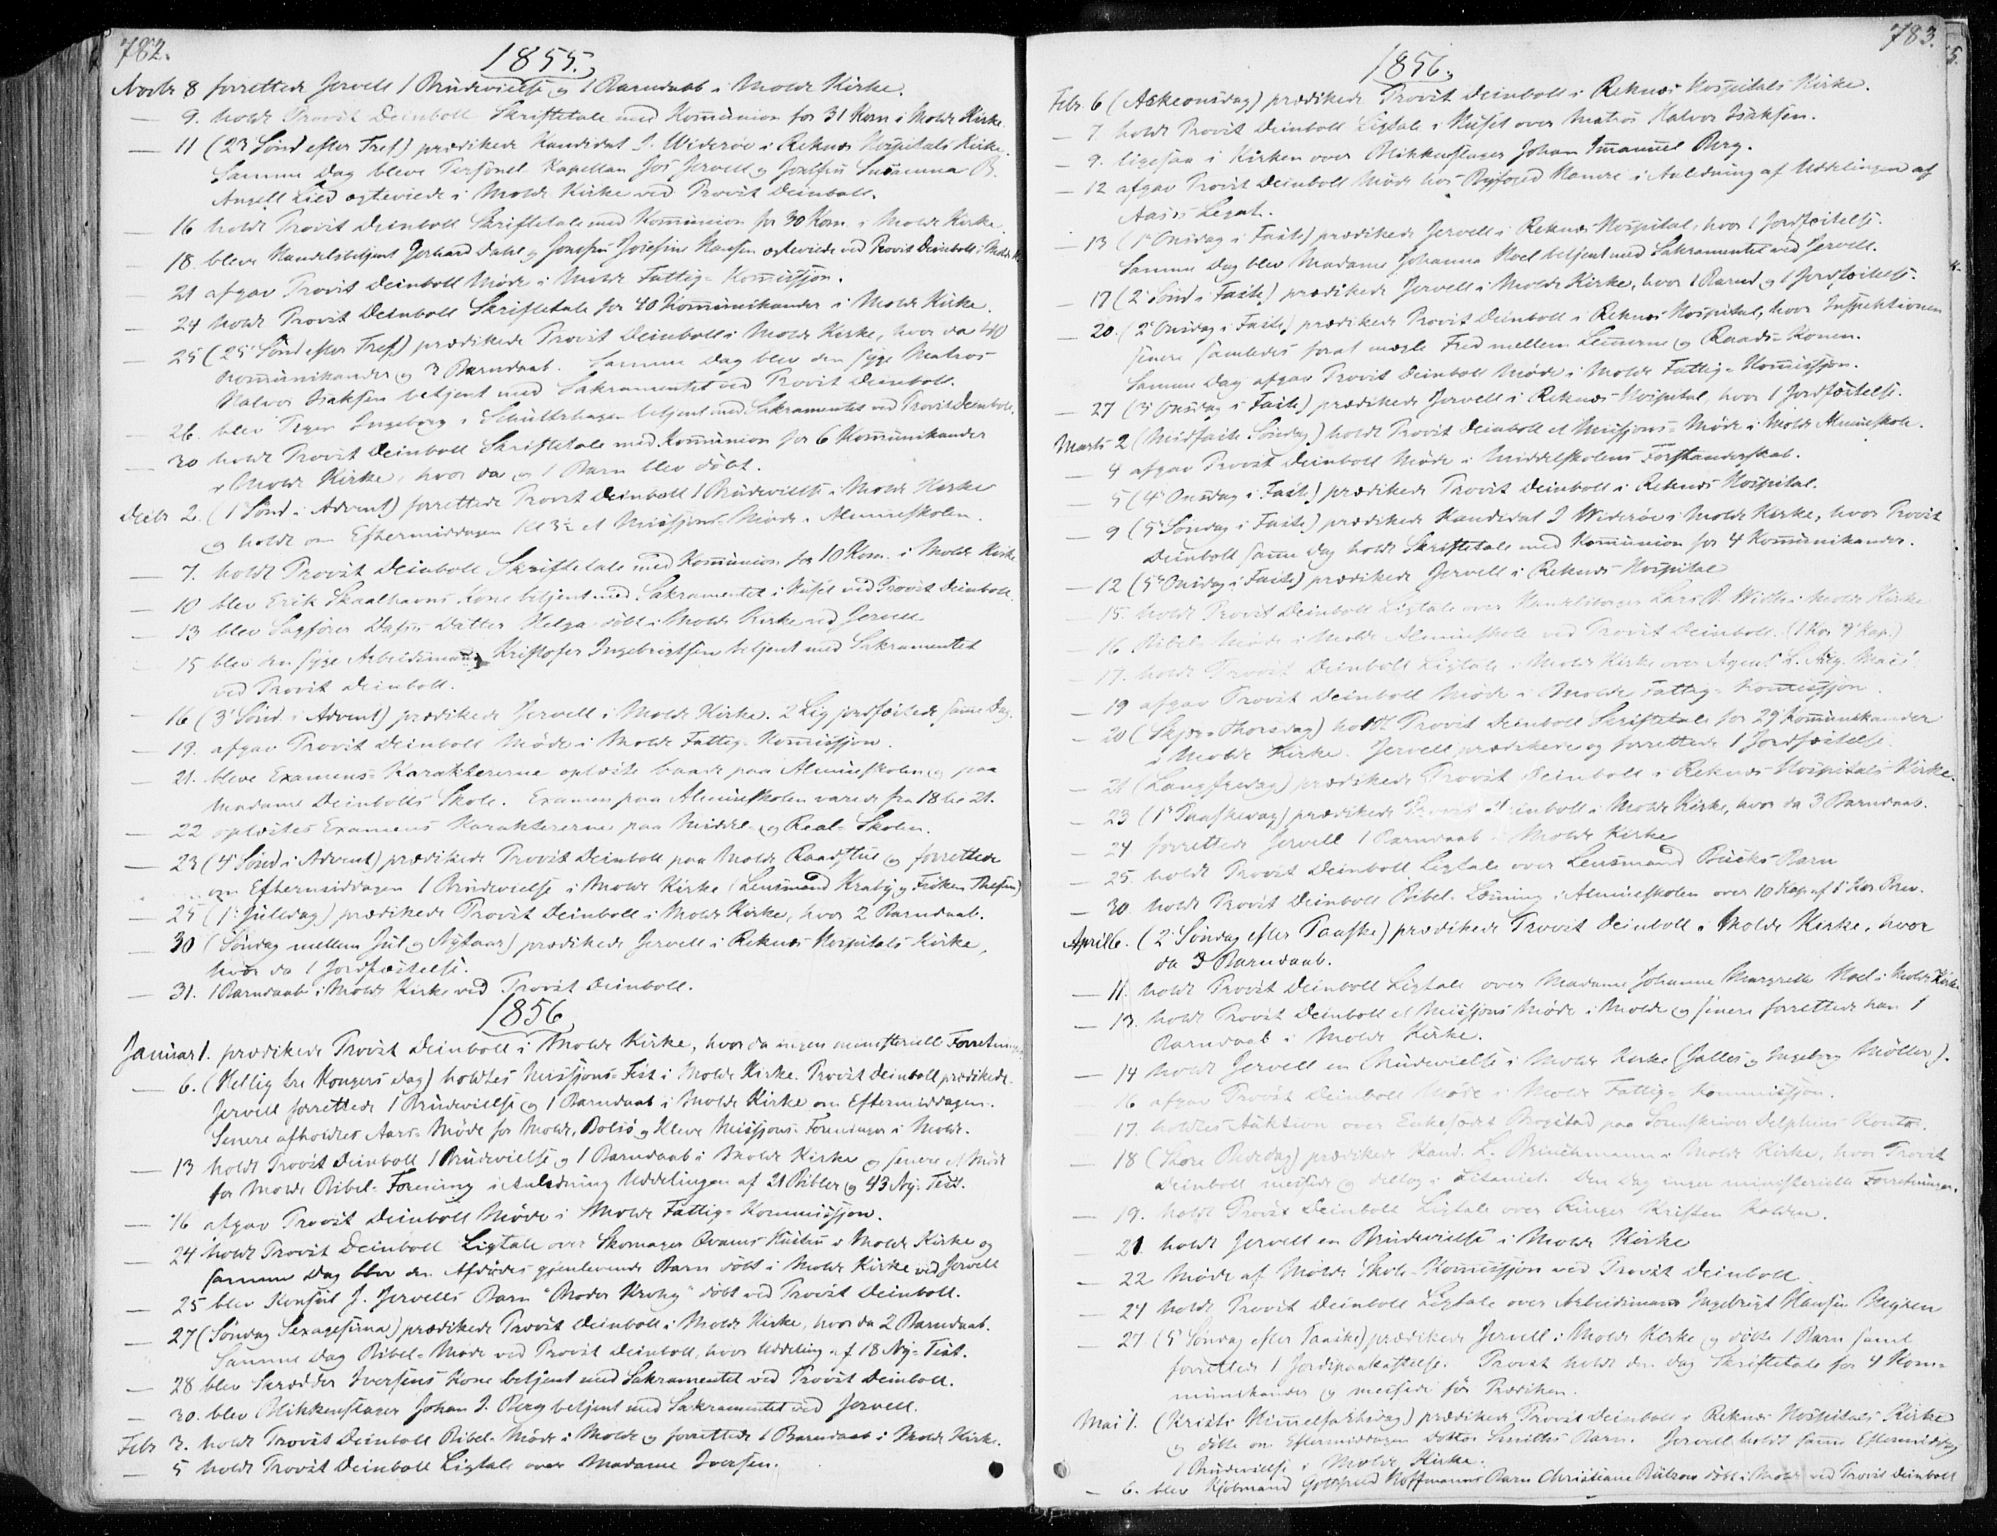 782.
1855.
Novbr 8 forrettede Jervell 1 Brudevielse og 1 Barndaab i Molde Kirke.
— 9. holdt Provst Deinboll Skriftetale med Kommunion for 31 Kom i Molde Kirke.
— 11 (23 Sønd efter Tref) prædikede Kandidat J. Widerøe i Reknes Hospitals Kirke.
Samme Dag bleve Personel Kapellan Jervell og Susanna B.
Angell Lied ægteviede i Molde Kirke ved Provst Deinboll.
— 16 holdt Provst Deinboll Skriftetale med Kommunion for 30 Kom i Molde Kirke.
— 18. bleve Handelsbetjent Gerhard Dahl og Josefine Hansen ægteviede ved Provst Deinboll i Molde K
— 21 afgav Provst Deinboll Møde i Molde Fattig-Kommission.
— 24 holdt Provst Deinboll Skriftetale for 40 Kommunikander i Molde Kirke.
— 25 (25 Sønd efter Tref) prædikede Provst Deinboll i Molde Kirke, hvor da 40
Kommunikander og 3 Barndaab. Samme Dag blev den syge Matros
Halvor Isaksen betjent med Sakramentet ved Provst Deinboll.
— 26. blev Pigen Ingeborg i Schultzhagen betjent med Sakramentet ved Provst Deinboll.
— 30 holdt Provst Deinboll Skriftetale med Kommunion for 6 Kommunikander
i Molde Kirke, hvor da og 1 Barn blev døbt.
Decbr 2. (1 Sønd i Advent) forrettede Provst Deinboll 1 Brudevielse i Molde Kirke
og holdt om Eftermiddagen Kl 3½ et Missions-Møde i Almueskolen.
— 7. holdt Provst Deinboll Skriftetale med Kommunion for 10 Kom. i Molde Kirke
— 10 blev Erik Skaalhavns Kone betjent med Sakramentet i Huset ved Provst Deinboll.
— 13 blev Sagfører Datter Helga døbt i Molde Kirke ved Jervell
— 15 blev den syge Arbeidsmand Kristofer Ingebrigtsen betjent med Sakramentet
ved Provst Deinboll.
— 16 (3 Sønd i Advent) prædikede Jervell i Molde Kirke. 2 Lig jordfæstede samme Dag.
— 19. afgav Provst Deinboll Møde i Molde Fattig-Kommission.
— 21. bleve Examens-Karaktererne oplæste baade paa Almueskolen og paa
Madame Deinbolls Skole. Examen paa Almueskolen varede fra 18 til 21.
— 22 oplæstes Examens Karaktererne paa Middel- og Real-Skolen.
— 23 (4 Sønd i Advent) prædikede Provst Deinboll paa Molde Raadstue og forrettede
om Eftermiddagen 1 Brudevielse i Molde Kirke (Lensmand Kraby og Frøken Thesen)
— 25 (1 Juledag) prædikede Provst Deinboll i Molde Kirke, hvor 2 Barndaab.
— 30 (Søndag mellem Jul og Nytaar) prædikede Jervell i Reknes Hospitals Kirke,
hvor da 1 Jordfæstelse.
— 31. 1 Barndaab i Molde Kirke ved Provst Deinboll.
1856
Januar 1. prædikede Provst Deinboll i Molde Kirke, hvor da ingen ministerielle Forretninger
— 6. (Hellig tre Kongers Dag) holdtes Missions-Fest i Molde Kirke. Provst Deinboll prædikede.
Jervell forrettede 1 Brudevielse og 1 Barndaab i Molde Kirke om Eftermiddagen.
Senere afholdtes Aars-Møde for Molde, Bolsø og Kleve Missions-Foreninger i Molde.
— 13 holdt Provst Deinboll 1 Brudevielse og 1 Barndaab i Molde Kirke og senere et Møde
for Molde Bibel-Forening i Anledning Uddelingen af 21 Bibler og 43 Ny-Test.
— 16 afgav Provst Deinboll Møde i Molde Fattig-Kommission.
— 24 holdt Provst Deinboll Ligtale over Skomager Qvams Hustru i Molde Kirke og
samme Dag blev den Afdødes gjenlevende Barn døbt i Molde Kirke ved Jervell
— 25 blev Konsul J. Jervells Barn "Broder Krohg" døbt ved Provst Deinboll.
— 27 (Søndag Sexagesima) prædikede Provst Deinboll i Molde Kirke, hvor da 2 Barndaab.
Samme Dag Bibel-Møde ved Provst Deinboll, hvor Uddeling af 18 Ny-Test.
— 28 blev Skrædder Iversens Kone betjent med Sakramentet ved Provst Deinboll.
— 30. blev Blikkenslager Johan I. Berg betjent med Sakramentet ved Jervell.
Febr 3. holdt Provst Deinboll Bibel-Møde i Molde og forrettede 1 Barndaab i Molde Kirke.
— 5 holdt Provst Deinboll Ligtale over Madame Iversen.
783.
1856.
Febr. 6 (Askeonsdag) prædikede Provst Deinboll i Reknes Hospitals Kirke.
— 7 holdt Provst Deinboll Ligtale i Huset over Matros Halvor Isaksen.
— 9. ligesaa i Kirken over Blikkenslager Johan Immanuel Berg.
— 12 afgav Provst Deinboll Møde hos Byfoged i Anledning af Uddelingen af
Aas's Legat.
— 13 (1 Onsdag i Faste) prædikede Jervell i Reknes Hospital, hvor 1 Jordfæstelse.
Samme Dag blev Madame Johanna Noel betjent med Sakramentet ved Jervell.
— 17 (2 Sønd i Faste) prædikede Jervell i Molde Kirke, hvor 1 Barnd. og 1 Jordfæstelse.
— 20. (2 Onsdag i Faste) prædikede Provst Deinboll i Reknes Hospital, hvor Inspektionen
senere samledes forat mægle Fred mellem Lemmerne og Raads-Konen.
Samme Dag afgav Provst Deinboll Møde i Molde Fattig-Kommission.
— 27 (3 Onsdag i Faste) prædikede Jervell i Reknes Hospital, hvor 1 Jordfæstelse.
Marts 2 (Midfaste Søndag) holdt Provst Deinboll et Missions-Møde i Molde Almueskole.
— 4 afgav Provst Deinboll Møde i Middelskolens Forstanderskab.
— 5 (4 Onsdag i Faste) prædikede Provst Deinboll i Reknes Hospital.
— 9 (5 Søndag i Faste) prædikede Kandidat J Widerøe i Molde Kirke, hvor Provst
Deinboll samme Dag holdt Skriftetale med Kommunion for 4 Kommunikander.
— 12 (5 Onsdag i Faste) prædikede Jervell i Reknes Hospital
— 15. holdt Provst Deinboll Ligtale over Handelsborger Lars P. With i Molde Kirke
— 16 Bibel-Møde i Molde Almueskole ved Provst Deinboll. (1 Kor 9 Kap.)
— 17. holdt Provst Deinboll Ligtale i Molde Kirke over Agent L. Aug.
— 19 afgav Provst Deinboll Møde i Molde Fattig-Kommission.
— 20 (Skjær-Thorsdag) holdt Provst Deinboll Skriftetale for 29 Kommunikander
i Molde Kirke. Jervell prædikede og forrettede 1 Jordfæstelse.
— 21 (Langfredag) prædikede Provst Deinboll i Reknes Hospitals Kirke.
— 23 (1 Paaskedag) prædikede Provst Deinboll i Molde Kirke, hvor da 3 Barndaab.
— 24 forrettede Jervell 1 Barndaab i Molde Kirke
— 25. holdt Provst Deinboll Ligtale over Lensmand Barn
— 30. holdt Provst Deinboll Bibel-Læsning i Almueskolen over 10 Kap af 1 Kor Brev.
April 6. (2 Søndag efter Paaske) prædikede Provst Deinboll i Molde Kirke, hvor
da 3 Barndaab.
— 11. holdt Provst Deinboll Ligtale over Madame Johanne Margrethe Noel i Molde Kirke
— 13. holdt Provst Deinboll et Missions Møde i Molde og senere forrettede han 1
Barndaab i Molde Kirke.
— 14 holdt Jervell en Brudevielse i Molde Kirke (Salles og Ingeborg Møller).
— 16 afgav Provst Deinboll Møde i Molde Fattig-Kommission.
— 17. holdtes Auktion over Enkesædet Mogstad paa Sorenskriver Delphins Kontor.
— 18 (Store Bededag) prædikede Kand. L. Brinchmann i Molde Kirke, hvor Provst
Deinboll messede og deltog i Litaniet. Den Dag ingen ministerielle Forretninger.
— 19. holdt Provst Deinboll Ligtale over Ringer Kristen Holden.
— 21 holdt Jervell en Brudevielse i Molde Kirke
— 22 Møde af Molde Skole-Kommission ved Provst Deinboll.
— 24 holdt Provst Deinboll Ligtale over Arbeidsmand Ingebrigt Hansen
— 27 (5 Søndag efter Paaske) prædikede Jervell i Molde Kirke og døbte 1 Barn samt
forrettede 1 Jordspaakastelse. Provst holdt den Dag Skriftetale for 4 Kom-
munikander og messede før Prædiken.
Mai 1. (Kristi Himmelfartsdag) prædikede Provst Deinboll i Reknes Hospitals Kirke
og døbte om Eftermiddagen Doktor Smiths Barn. Jervell holdt samme Eftermiddag
1 Brudevielse i Molde Kirke.
— 6. blev Kjøbmand Gottfried Hoffmanns Barn Christiane Bülzow døbt i Molde ved Provst Deinboll